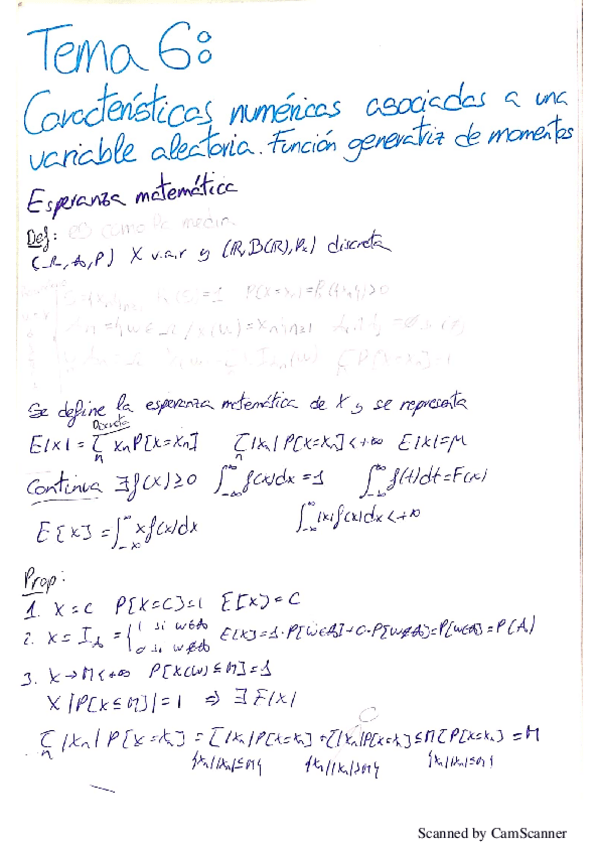 Tema 6:
Características numéricas asociadas a una
variable aleatoria. Función generatriz de momentos
Esperanza matemática
Def: es como la media.
(Ω, A, P) X v.a.r y (R, B(R), Px) discreta
Se define la esperanza matemática de X y se representa
Discreta
E[X] = Σ xn P[X=xn] Σ |xn| P[X=xn] < +∞ E[X] = μ
n n
Continua ∃ f(x) ≥ 0 ∫_{-∞}^{∞} f(x)dx = 1 ∫_{-∞}^{∞} f(t)dt = F(x)
E[X] = ∫_{-∞}^{∞} x f(x)dx ∫_{-∞}^{∞} |x| f(x)dx < +∞
Prop:
1. X = C P[X=C]=1 E[X] = C
2. X = I_A = { 1 si w∈A E[X] = 1·P[w∈A] + 0·P[w∉A] = P[w∈A] = P(A)
0 si w∉A
3. X → M < +∞ P[X(w) ≤ M] = 1
X / P[X ≤ M] = 1 ⇒ ∃ E[X]
Σ |xn| P[X=xn] = Σ |xn| P[X=xn] + Σ |xn| P[X=xn] ≤ M Σ P[X=xn] = M
n {xn/|xn|≤M} {xn/|xn|>M} {xn/|xn|≤M}
Scanned by CamScanner